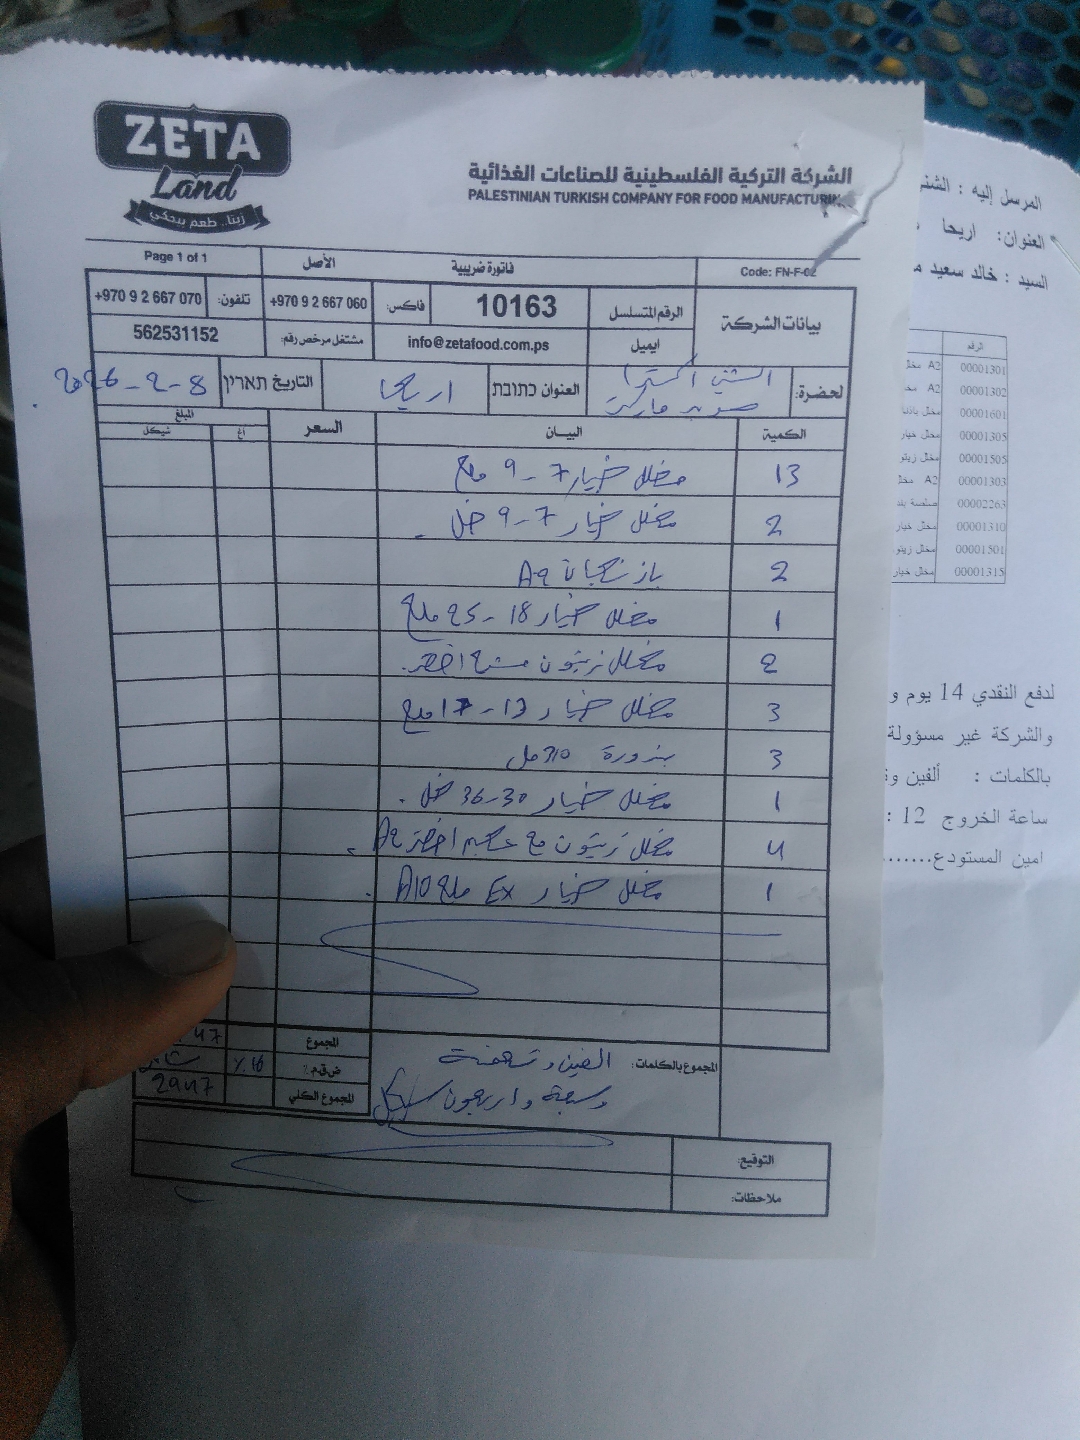 ZETA
Land
زيتا.. طعم بيحكي
الشركة التركية الفلسطينية للصناعات الغذائية
PALESTINIAN TURKISH COMPANY FOR FOOD MANUFACTURING
Page 1 of 1 الأصل فاتورة ضريبية Code: FN-F-02
بيانات الشركة الرقم المتسلسل 10163 فاكس: +970 9 2 667 060 تلفون: +970 9 2 667 070
ايميل info@zetafood.com.ps مشتغل مرخص رقم: 562531152
لحضرة: الشني اكسترا سوبر ماركت العنوان כתובת اريحا التاريخ תאריך 8-2-2026
الكمية البيان السعر المبلغ
אג شيكل
13 مخلل خيار 7-9 ملح
2 مخلل خيار 7-9 خل
2 A9
1 مخلل خيار 18-25 ملح
2 مخلل زيتون اخضر
3 مخلل خيار 13-17 ملح
3 بندورة 310 مل
1 مخلل خيار 30-36 خل
4 مخلل زيتون مع عجم اخضر A9
1 مخلل خيار Ex ملح A10
المجموع بالكلمات: الفين وتسعمئة
وسبعة واربعون شيكل
المجموع 47
ض.ق.م٪ 16٪
المجموع الكلي 2947
التوقيع:
ملاحظات:
المرسل إليه : الشني
العنوان: اريحا
السيد : خالد سعيد
الرقم
00001301 A2
00001302 A2
00001601 مخلل
00001305 مخلل خيار
00001505 مخلل زيتو
00001303 A2
00002263 صلصة بند
00001310 مخلل خيار
00001501 مخلل زيتو
00001315 مخلل خيار
لدفع النقدي 14 يوم و
والشركة غير مسؤولة
بالكلمات : ألفين و
ساعة الخروج 12 :
امين المستودع.......